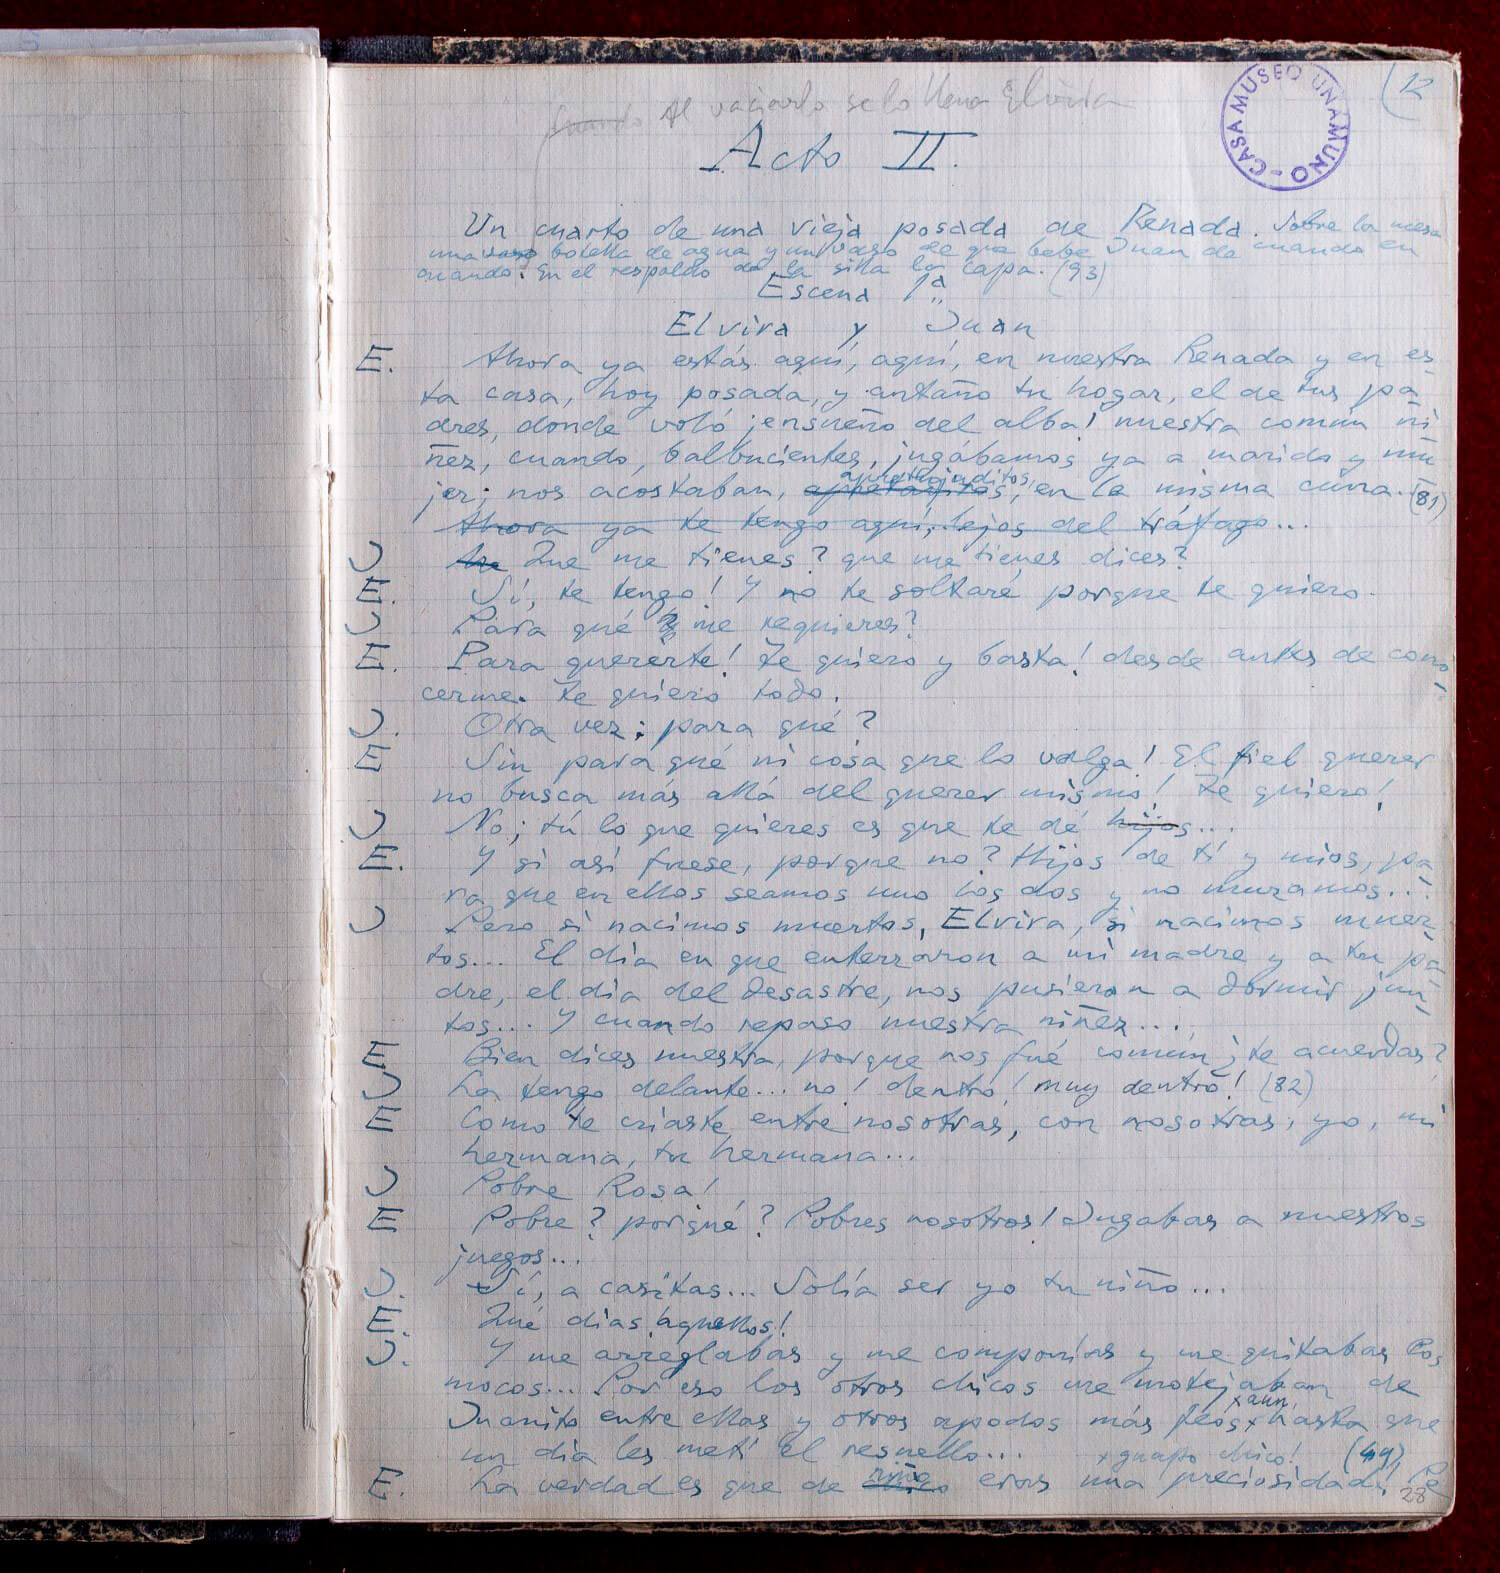 Al vaciarlo se lo llena Elvira
CASA MUSEO UNAMUNO -
12
Acto II.
Un cuarto de una vieja posada de Renada. Sobre la mesa
una vaso botella de agua y un vaso de que bebe Juan de cuando en
cuando. En el respaldo de la silla la capa. (93)
Escena 1ª
Elvira y Juan
E. Ahora ya estás aquí, aquí, en nuestra Renada y en es-
ta casa, hoy posada, y antaño tu hogar, el de tus pa-
dres, donde voló ¡ensueño del alba! nuestra común ni-
ñez, cuando, balbucientes, jugábamos ya a marido y mu-
jer; nos acostaban, apretaditos, en la misma cuna... (81)
Ahora ya te tengo aquí, lejos del tráfago...
J Que me tienes? que me tienes dices?
E. Sí, te tengo! Y no te soltaré porque te quiero.
J Para qué me quieres?
E. Para quererte! Te quiero y basta! desde antes de cono-
cerme. Te quiero todo.
J. Otra vez; para qué?
E Sin para qué ni cosa que lo valga! El fiel querer
no busca más allá del querer mismo! Te quiero!
J No; tú lo que quieres es que te dé hijos...
E. Y si así fuese, porque no? Hijos de tí y mios, pa-
ra que en ellos seamos uno los dos y no muramos...
J Pero si nacimos muertos, Elvira, si nacimos muer-
tos... El día en que enterraron a mi madre y a tu pa-
dre, el día del desastre, nos pusieron a dormir jun-
tos... Y cuando repaso nuestra niñez...
E Bien dices nuestra, porque nos fué común ¿te acuerdas?
J La tengo delante... no! dentro! muy dentro! (82)
E Como te criaste entre nosotras, con nosotras, yo, mi
hermana, tu hermana...
J Pobre Rosa!
E Pobre? porqué? Pobres nosotros! Jugabas a nuestros
juegos...
J. Sí, a casitas... Solía ser yo tu niño...
E. Qué días aquellos!
J. Y me arreglabas y me componías y me quitabas los
mocos... Por eso los otros chicos me motejaban de
x aun,
Juanito entre ellas y otros apodos más feos x hasta que
un día les metí el resuello... x guapo chico! (44)
E. La verdad es que de niño eras una preciosidad! Pe
28